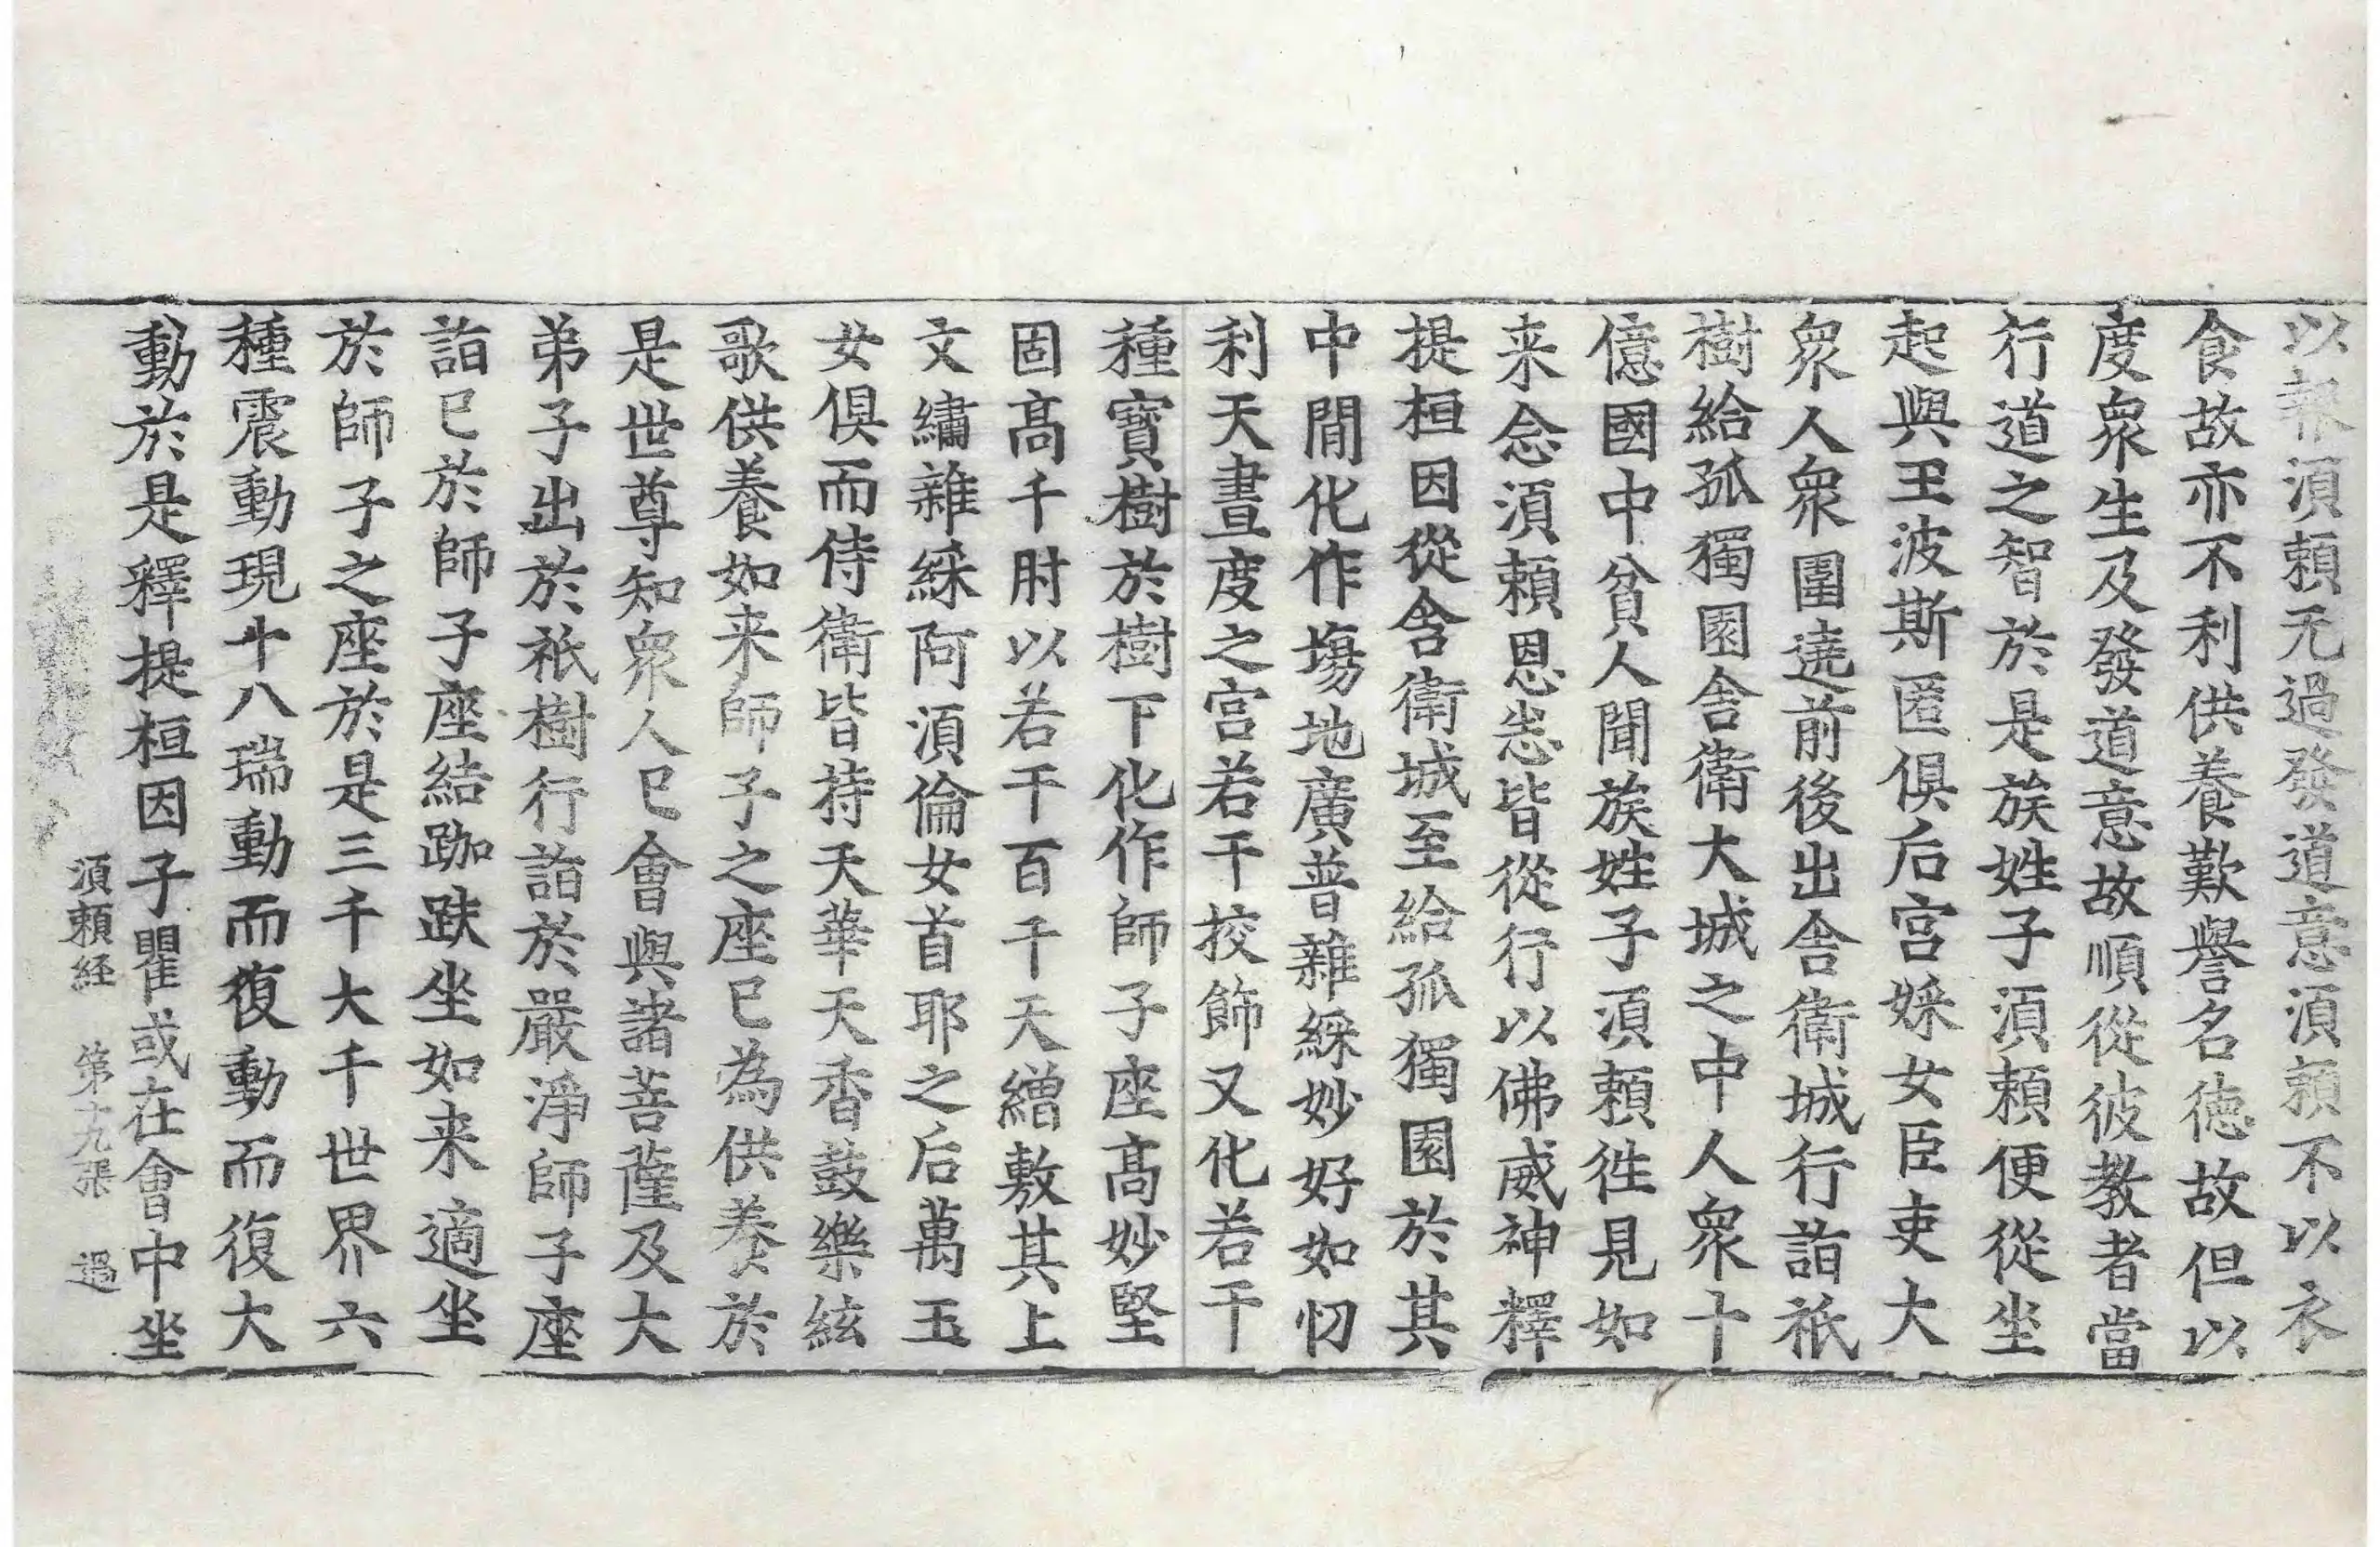 以報須頼无過發道意須頼不以衣
食故亦不利供養歎譽名德故但以
度衆生及發道意故順從彼教者當
行道之智於是族姓子須頼便從坐
起與王波斯匿俱后宫婇女臣吏大
衆人衆圍遶前後出舍衛城行詣祇
樹給孤獨園舍衛大城之中人衆十
億國中貧人聞族姓子須頼徃見如
来念須頼恩悉皆從行以佛威神釋
提桓因從舍衛城至給孤獨園於其
中間化作場地廣普雜綵妙好如忉
利天晝度之宫若干挍飾又化若干
種寶樹於樹下化作師子座高妙堅
固高千肘以若干百千天繒敷其上
文繡雜綵阿須倫女首耶之后萬玉
女俱而侍衛皆持天華天香鼓樂絃
歌供養如来師子之座已為供養於
是世尊知衆人已會與諸菩薩及大
弟子出於祇樹行詣於嚴淨師子座
詣已於師子座結跏趺坐如来適坐
於師子之座於是三千大千世界六
種震動現十八瑞動而復動而復大
動於是釋提桓因子瞿或在會中坐
須頼経 第十九張 過